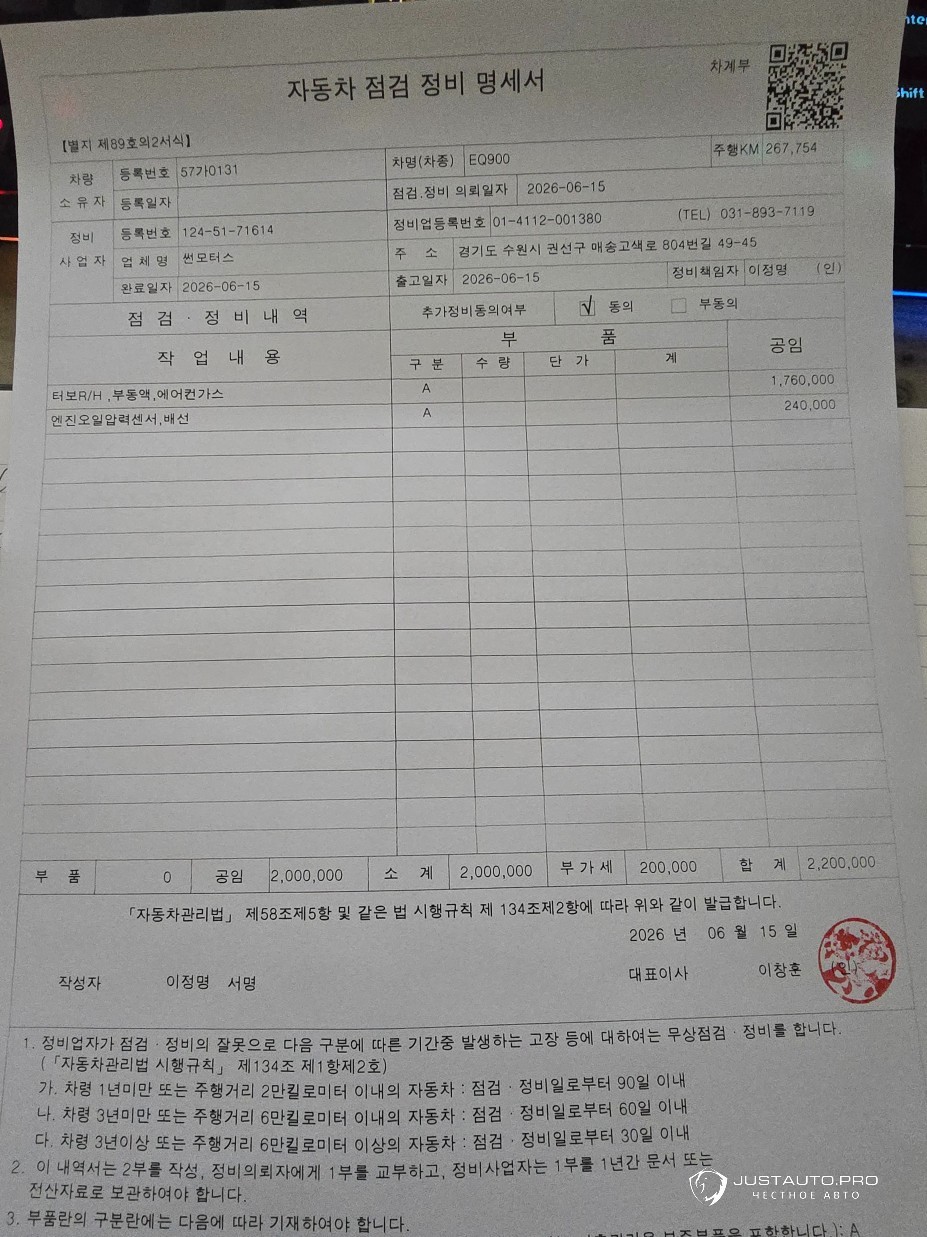 nter
Shift
차계부
자동차 점검 정비 명세서
【별지 제89호의2서식】
차량 소유자 등록번호 57가0131 차명(차종) EQ900 주행KM 267,754
등록일자 점검.정비 의뢰일자 2026-06-15
정비 사업자 등록번호 124-51-71614 정비업등록번호 01-4112-001380 (TEL) 031-893-7119
업체명 썬모터스 주 소 경기도 수원시 권선구 매송고색로 804번길 49-45
완료일자 2026-06-15 출고일자 2026-06-15 정비책임자 이정명 (인)
점 검 · 정 비 내 역 추가정비동의여부 √ 동의 부동의
작 업 내 용 부 품 공임
구 분 수 량 단 가 계
터보R/H ,부동액,에어컨가스 A 1,760,000
엔진오일압력센서,배선 A 240,000
부 품 0 공임 2,000,000 소 계 2,000,000 부가세 200,000 합 계 2,200,000
「자동차관리법」 제58조제5항 및 같은 법 시행규칙 제 134조제2항에 따라 위와 같이 발급합니다.
2026 년 06 월 15 일
작성자 이정명 서명 대표이사 이창훈 (인)
1. 정비업자가 점검 · 정비의 잘못으로 다음 구분에 따른 기간중 발생하는 고장 등에 대하여는 무상점검 · 정비를 합니다.
(「자동차관리법 시행규칙」 제134조 제1항제2호)
가. 차령 1년미만 또는 주행거리 2만킬로미터 이내의 자동차 : 점검 · 정비일로부터 90일 이내
나. 차령 3년미만 또는 주행거리 6만킬로미터 이내의 자동차 : 점검 · 정비일로부터 60일 이내
다. 차령 3년이상 또는 주행거리 6만킬로미터 이상의 자동차 : 점검 · 정비일로부터 30일 이내
2. 이 내역서는 2부를 작성, 정비의뢰자에게 1부를 교부하고, 정비사업자는 1부를 1년간 문서 또는
전산자료로 보관하여야 합니다.
3. 부품란의 구분란에는 다음에 따라 기재하여야 합니다.
포함합니다.): A
JUSTAUTO.PRO
ЧЕСТНОЕ АВТО